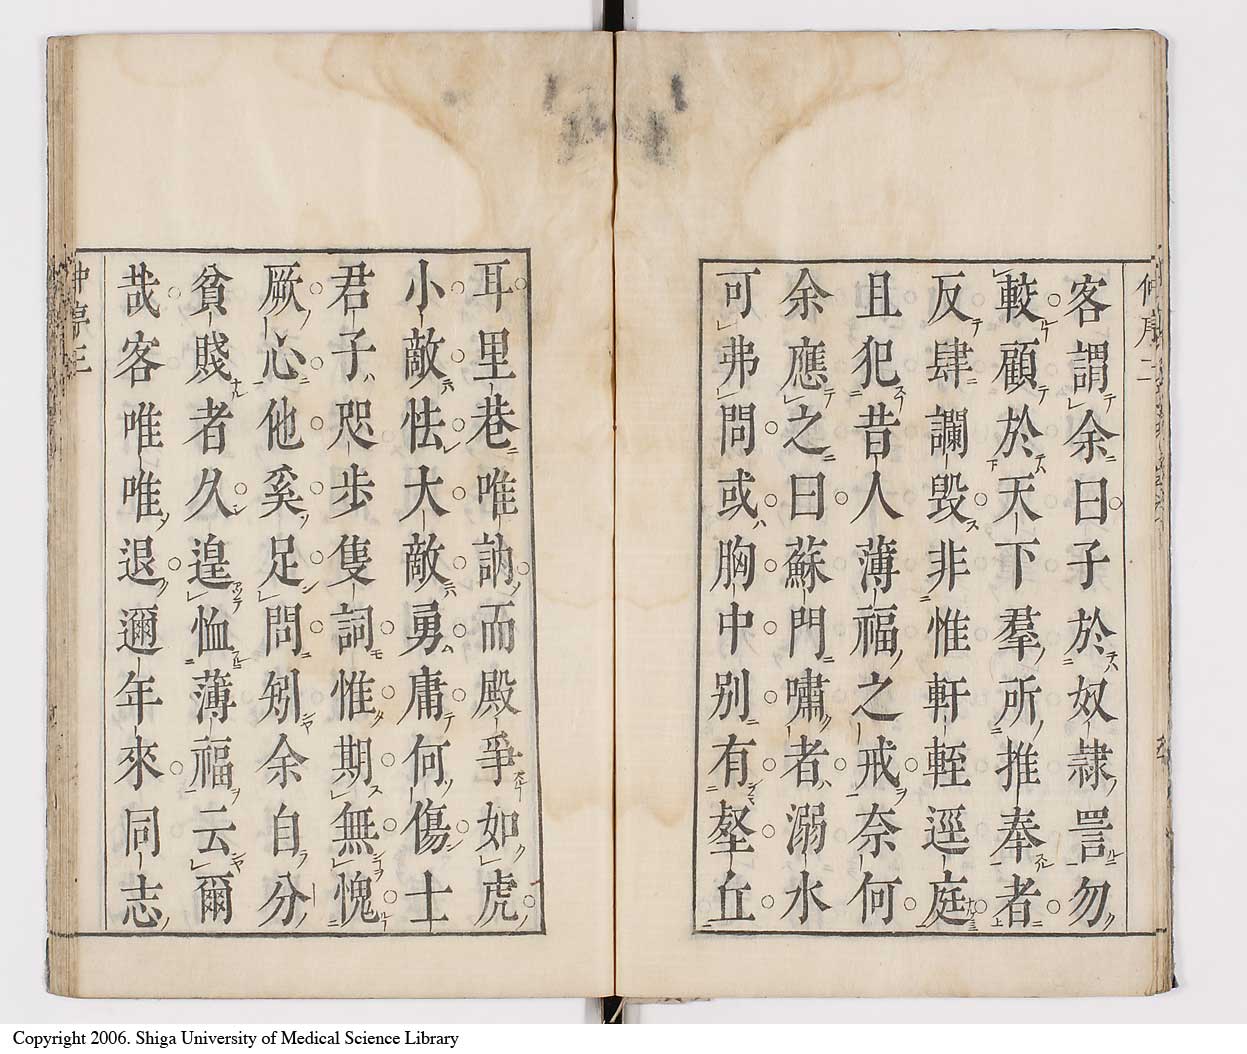 客謂余曰子於奴隷詈勿
較顧於天下羣所推奉者
反肆讕毀非惟軒輊逕庭
且犯昔人薄福之戒奈何
余應之曰蘇門嘯者溺水
可弗問或胸中別有壑丘
耳里巷唯訥而殿爭如虎
小敵怯大敵勇庸何傷士
君子咫步隻詞惟期無愧
厥心他奚足問矧余自分
貧賤者久遑恤薄福云爾
哉客唯唯退邇年來同志
Copyright 2006. Shiga University of Medical Science Library